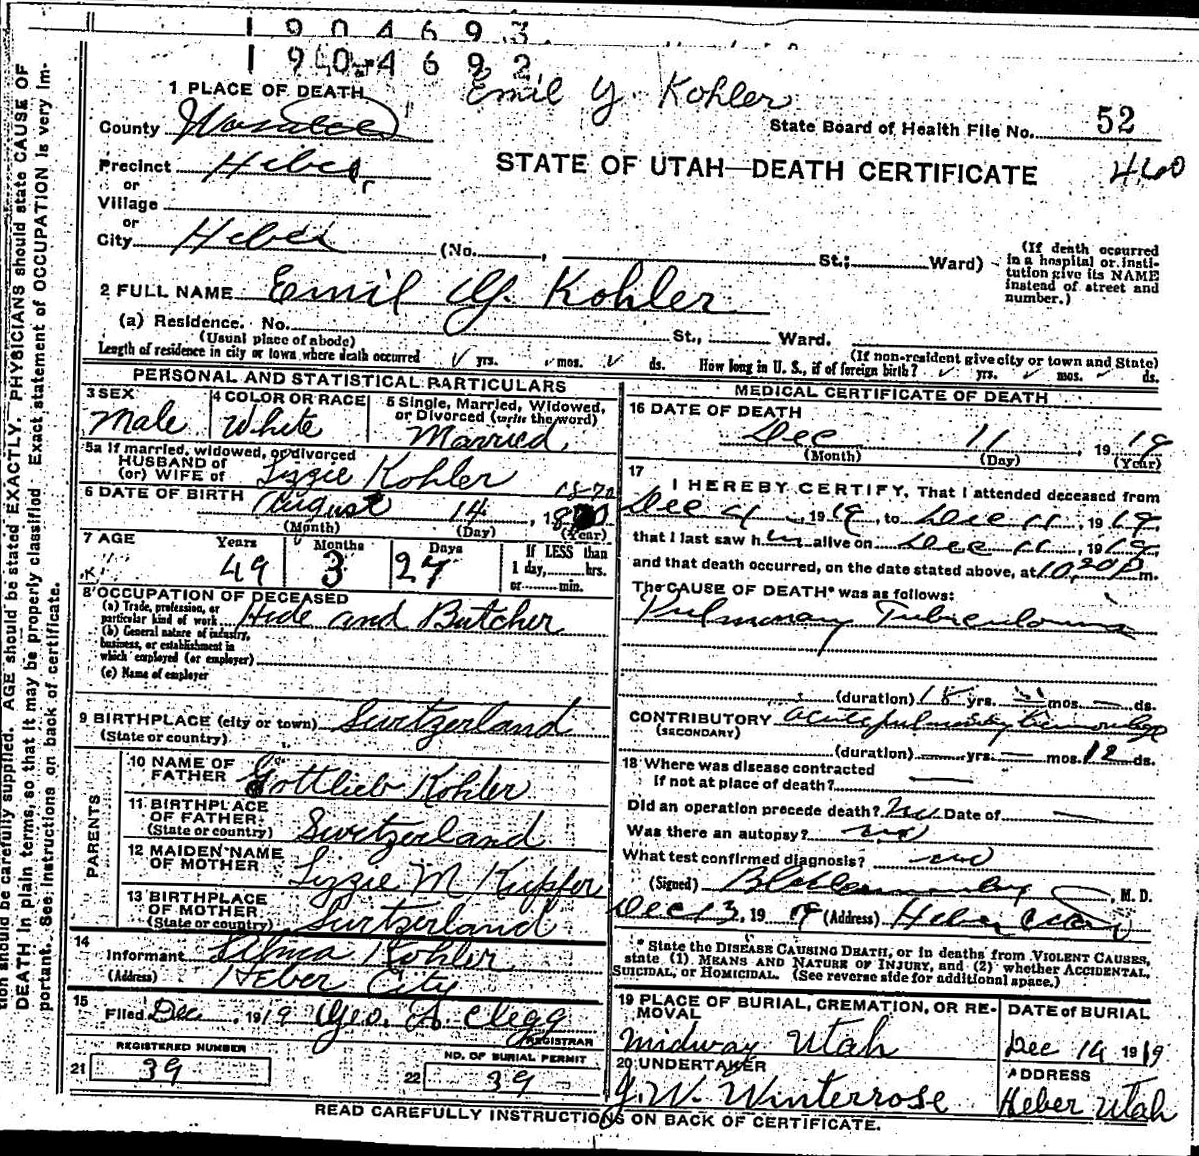 1904693
1904692
Emil Y. Kohler
1 PLACE OF DEATH
County Wasatch
State Board of Health File No. 52
Precinct Heber
STATE OF UTAH—DEATH CERTIFICATE 460
or
Village
or
City Heber (No. , St.; Ward)
(If death occurred in a hospital or institution give its NAME instead of street and number.)
2 FULL NAME Emil Y. Kohler
(a) Residence. No. St., Ward.
(Usual place of abode) (If non-resident give city or town and State)
Length of residence in city or town where death occurred yrs. mos. ds. How long in U. S., if of foreign birth? yrs. mos. ds.
PERSONAL AND STATISTICAL PARTICULARS
3 SEX
Male
4 COLOR OR RACE
White
5 Single, Married, Widowed, or Divorced (write the word)
Married
5a If married, widowed, or divorced
HUSBAND of
(or) WIFE of Lizzie Kohler
6 DATE OF BIRTH 1870
August 14, 1870
(Month) (Day) (Year)
7 AGE Years Months Days If LESS than
49 3 27 1 day, hrs.
or min.
8 OCCUPATION OF DECEASED
(a) Trade, profession, or particular kind of work Hide and Butcher
(b) General nature of industry, business, or establishment in which employed (or employer)
(c) Name of employer
9 BIRTHPLACE (city or town) Switzerland
(State or country)
PARENTS
10 NAME OF FATHER Gottlieb Kohler
11 BIRTHPLACE OF FATHER
(State or country) Switzerland
12 MAIDEN NAME OF MOTHER Lizzie M Kupfer
13 BIRTHPLACE OF MOTHER
(State or country) Switzerland
14
Informant Kohler
(Address) Heber City
15
Filed Dec, 1919 Geo. A. Clegg
REGISTRAR
REGISTERED NUMBER NO. OF BURIAL PERMIT
21 39 22 39
MEDICAL CERTIFICATE OF DEATH
16 DATE OF DEATH
Dec 11 1919
(Month) (Day) (Year)
17
I HEREBY CERTIFY, That I attended deceased from
Dec, 1919, to Dec 11, 1919
that I last saw him alive on Dec 11, 1919
and that death occurred, on the date stated above, at 10,20 P m.
The CAUSE OF DEATH* was as follows:
Pulmonary Tuberculosis
(duration) yrs. mos. ds.
CONTRIBUTORY Acute pulmonary hemorrhage
(SECONDARY)
(duration) yrs. mos. 12 ds.
18 Where was disease contracted
if not at place of death?
Did an operation precede death? no Date of
Was there an autopsy? no
What test confirmed diagnosis?
(Signed) , M. D.
Dec 13, 1919 (Address) Heber
* State the DISEASE CAUSING DEATH, or in deaths from VIOLENT CAUSES,
state (1) MEANS AND NATURE OF INJURY, and (2) whether ACCIDENTAL,
SUICIDAL, or HOMICIDAL. (See reverse side for additional space.)
19 PLACE OF BURIAL, CREMATION, OR REMOVAL
Midway Utah
DATE of BURIAL
Dec 14 1919
20 UNDERTAKER
J. W. Winterrose
ADDRESS
Heber Utah
READ CAREFULLY INSTRUCTIONS ON BACK OF CERTIFICATE.
tion should be carefully supplied. AGE should be stated EXACTLY. PHYSICIANS should state CAUSE OF
DEATH in plain terms, so that it may be properly classified. Exact statement of OCCUPATION is very im-
portant. See instructions on back of certificate.